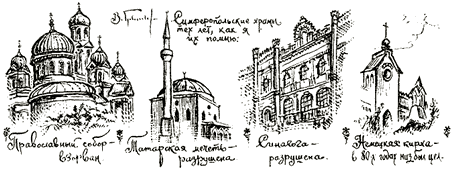 Симферопольские храмы
тех лет, как я
их помню:
Православный собор -
взорван
Татарская мечеть -
разрушена
Синагога -
разрушена.
Немецкая кирха -
в 80х годах
был цел.